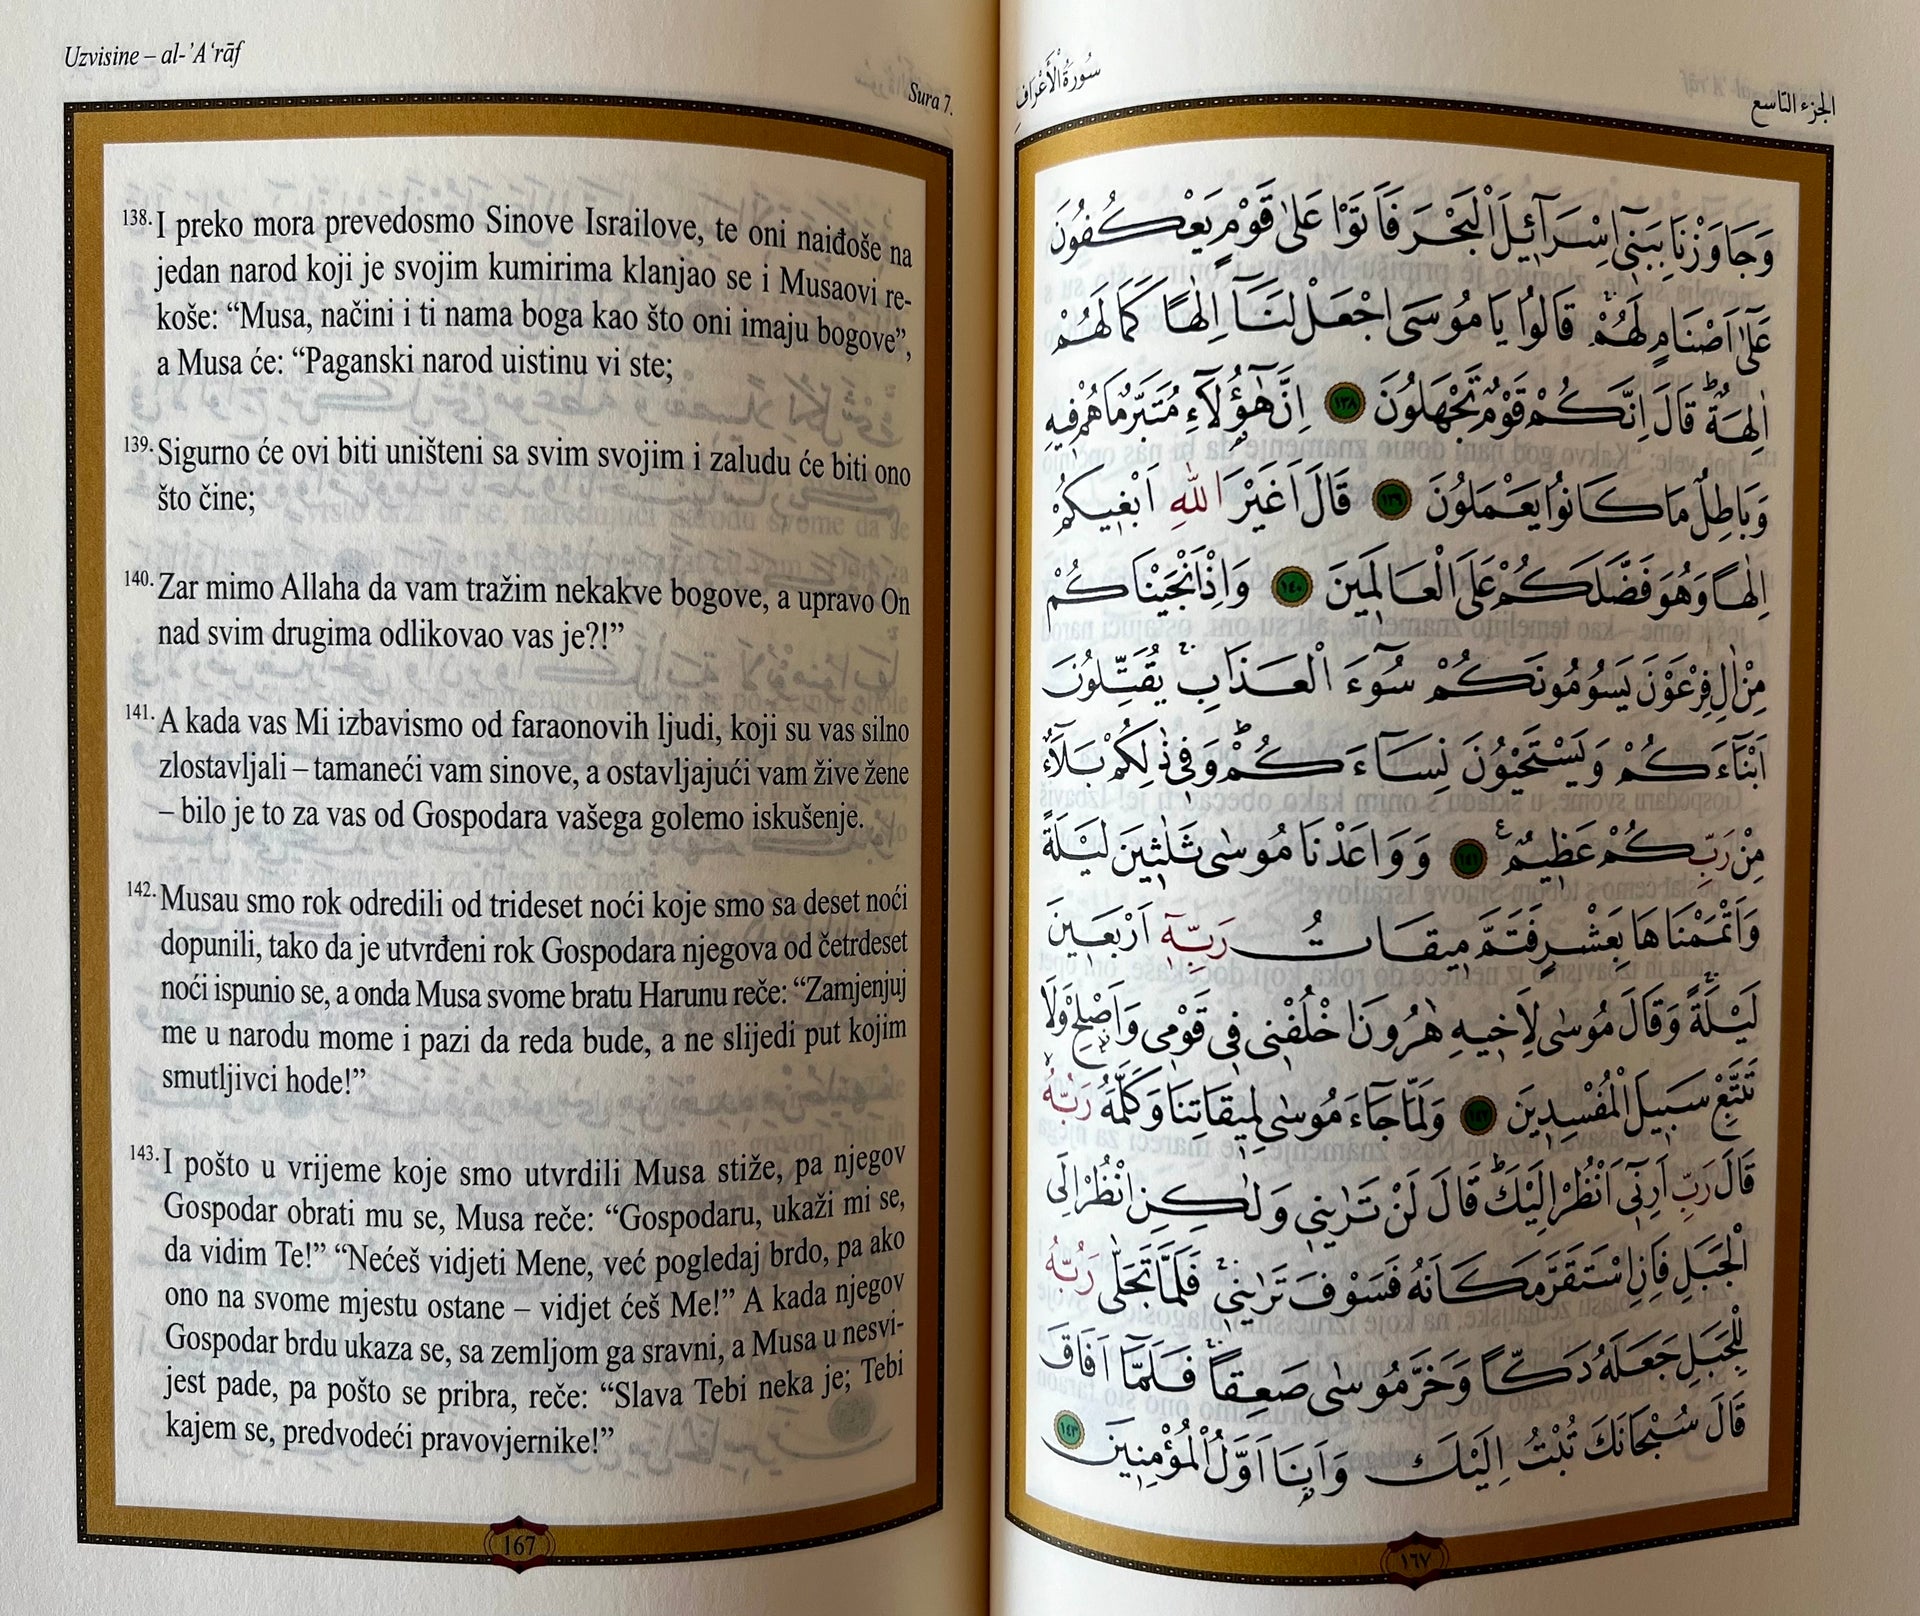 Uzvisine – al-’A‘rāf
Sura 7.
138. I preko mora prevedosmo Sinove Israilove, te oni naiđoše na
jedan narod koji je svojim kumirima klanjao se i Musaovi re-
koše: “Musa, načini i ti nama boga kao što oni imaju bogove”,
a Musa će: “Paganski narod uistinu vi ste;
139. Sigurno će ovi biti uništeni sa svim svojim i zaludu će biti ono
što čine;
140. Zar mimo Allaha da vam tražim nekakve bogove, a upravo On
nad svim drugima odlikovao vas je?!”
141. A kada vas Mi izbavismo od faraonovih ljudi, koji su vas silno
zlostavljali – tamaneći vam sinove, a ostavljajući vam žive žene
– bilo je to za vas od Gospodara vašega golemo iskušenje.
142. Musau smo rok odredili od trideset noći koje smo sa deset noći
dopunili, tako da je utvrđeni rok Gospodara njegova od četrdeset
noći ispunio se, a onda Musa svome bratu Harunu reče: “Zamjenjuj
me u narodu mome i pazi da reda bude, a ne slijedi put kojim
smutljivci hode!”
143. I pošto u vrijeme koje smo utvrdili Musa stiže, pa njegov
Gospodar obrati mu se, Musa reče: “Gospodaru, ukaži mi se,
da vidim Te!” “Nećeš vidjeti Mene, već pogledaj brdo, pa ako
ono na svome mjestu ostane – vidjet ćeš Me!” A kada njegov
Gospodar brdu ukaza se, sa zemljom ga sravni, a Musa u nesvi-
jest pade, pa pošto se pribra, reče: “Slava Tebi neka je; Tebi
kajem se, predvodeći pravovjernike!”
167
سُورَةُ الْأَعْرَافِ
الجزء التاسع
وَجَاوَزْنَا بِبَنِٓي اِسْرَٓائِلَ الْبَحْرَ فَاَتَوْا عَلٰى قَوْمٍ يَعْكُفُونَ
عَلٰٓى اَصْنَامٍ لَهُمْۚ قَالُوا يَا مُوسَى اجْعَلْ لَنَٓا اِلٰهًا كَمَا لَهُمْ
اٰلِهَةٌۜ قَالَ اِنَّكُمْ قَوْمٌ تَجْهَلُونَ ١٣٨ اِنَّ هٰٓؤُ۬لَٓاءِ مُتَبَّرٌ مَا هُمْ فِيهِ
وَبَاطِلٌ مَا كَانُوا يَعْمَلُونَ ١٣٩ قَالَ اَغَيْرَ اللّٰهِ اَبْغِيكُمْ
اِلٰهًا وَهُوَ فَضَّلَكُمْ عَلَى الْعَالَمِينَ ١٤٠ وَاِذْ اَنْجَيْنَاكُمْ
مِنْ اٰلِ فِرْعَوْنَ يَسُومُونَكُمْ سُٓوءَ الْعَذَابِۚ يُقَتِّلُونَ
اَبْنَٓاءَكُمْ وَيَسْتَحْيُونَ نِسَٓاءَكُمْۜ وَفِي ذٰلِكُمْ بَلَٓاءٌ
مِنْ رَبِّكُمْ عَظِيمٌ ١٤١ وَوَاعَدْنَا مُوسٰى ثَلٰثِينَ لَيْلَةً
وَاَتْمَمْنَاهَا بِعَشْرٍ فَتَمَّ مِيقَاتُ رَبِّهٓ اَرْبَعِينَ
لَيْلَةًۚ وَقَالَ مُوسٰى لِاَخِيهِ هٰرُونَ اخْلُفْنِي فِي قَوْمِي وَاَصْلِحْ وَلَا
تَتَّبِعْ سَبِيلَ الْمُفْسِدِينَ ١٤٢ وَلَمَّا جَٓاءَ مُوسٰى لِمِيقَاتِنَا وَكَلَّمَهُ رَبُّهُ
قَالَ رَبِّ اَرِنِٓي اَنْظُرْ اِلَيْكَۜ قَالَ لَنْ تَرٰينِي وَلٰكِنِ انْظُرْ اِلَى
الْجَبَلِ فَاِنِ اسْتَقَرَّ مَكَانَهُ فَسَوْفَ تَرٰينِيۚ فَلَمَّا تَجَلّٰى رَبُّهُ
لِلْجَبَلِ جَعَلَهُ دَكًّا وَخَرَّ مُوسٰى صَعِقًاۚ فَلَمَّٓا اَفَاقَ
قَالَ سُبْحَانَكَ تُبْتُ اِلَيْكَ وَاَنَا۬ اَوَّلُ الْمُؤْمِنِينَ ١٤٣
١٦٧